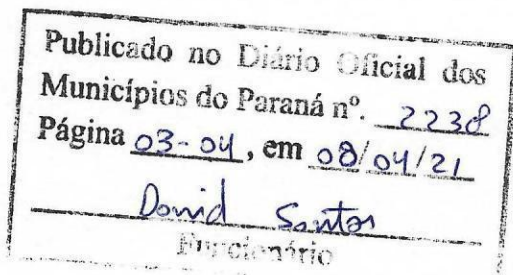 Publicado no Diário Oficial dos
Municípios do Paraná nº. 2238
Página 03-04, em 08/04/21
David Santos
Funcionário